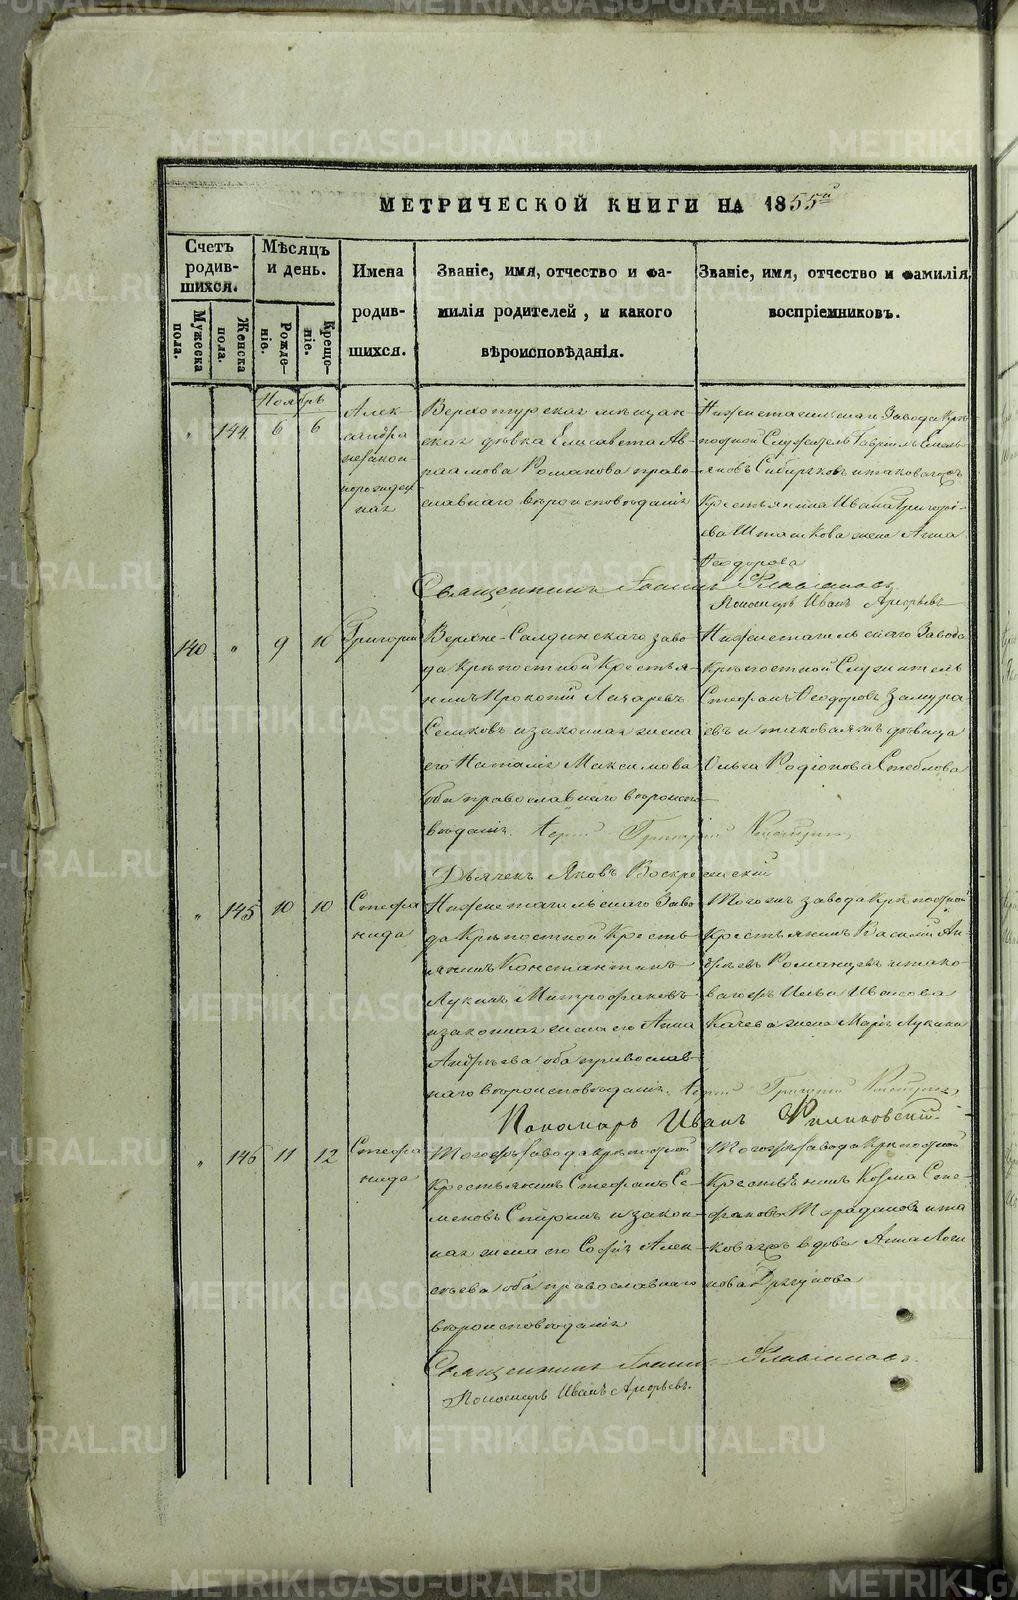 МЕТРИЧЕСКОЙ КНИГИ НА 1855й
Счетъ родив-шихся.
Мужеска пола.
Женска пола.
Мѣсяцъ и день.
Рожде-ніе.
Креще-ніе.
Имена
родив-
шихся.
Званіе, имя, отчество и фа-
милія родителей, и какого
вѣроисповѣданія.
Званіе, имя, отчество и фамилія
воспріемниковъ.
Ноябрь
" 144 6 6
Алек
сандра
незакон
норожден
ная
Верхотурская мѣщан
ская дѣвка Елисавета Ав
раамова Романова право
славнаго вѣроисповѣданія
Нижнетагильскаго Завода Крѣ
постной Служитель Гавріилъ Емель
яновъ Сибиряковъ и таковагожъ
Крестьянина Ивана Григорі-
ева жена Анна
Ѳеодорова
Священникъ Іоаннъ Флавіановъ
Пономарь Иванъ
140 " 9 10
Григорій
Верхне-Салдинскаго заво
да Крѣпостной Крестья-
нинъ Прокопій Лазаревъ
и законная жена
его Наталія Максимова
оба православнаго вѣроиспо
вѣданія.
Нижнетагильскаго Завода
Крѣпостной Служитель
Стефанъ Ѳеодоровъ Замура
евъ и таковаяжъ дѣвица
Ольга Родіонова Стеблова
Іерей Григорій
Дьячекъ Яковъ Воскресенскій
" 145 10 10
Стефа
нида
Нижнетагильскаго Заво
да Крѣпостной Кресть
янинъ Константинъ
Лукинъ Митрофановъ
и законная жена его Анна
Андрѣева оба православ
наго вѣроисповѣданія.
Тогожъ завода Крѣпостной
Крестьянинъ Василій Ан
дрѣевъ Романцевъ и тако
вагожъ Ильи Иванова
жена Марія Лукина
Іерей Григорій
Пономарь Иванъ Филиковскій
" 146 11 12
Стефа
нида
Тогожъ завода крѣпостной
Крестьянинъ Стефанъ Се
меновъ Спиринъ и закон
ная жена его Софія Алек
сѣева оба православнаго
вѣроисповѣданія
Тогожъ завода крѣпостной
Крестьянинъ Козма Сте
фановъ и та
ковагожъ вдова Анна Логи
нова Дрягунова
Священникъ Іоаннъ Флавіановъ.
Пономарь Иванъ
METRIKI.GASO-URAL.RU